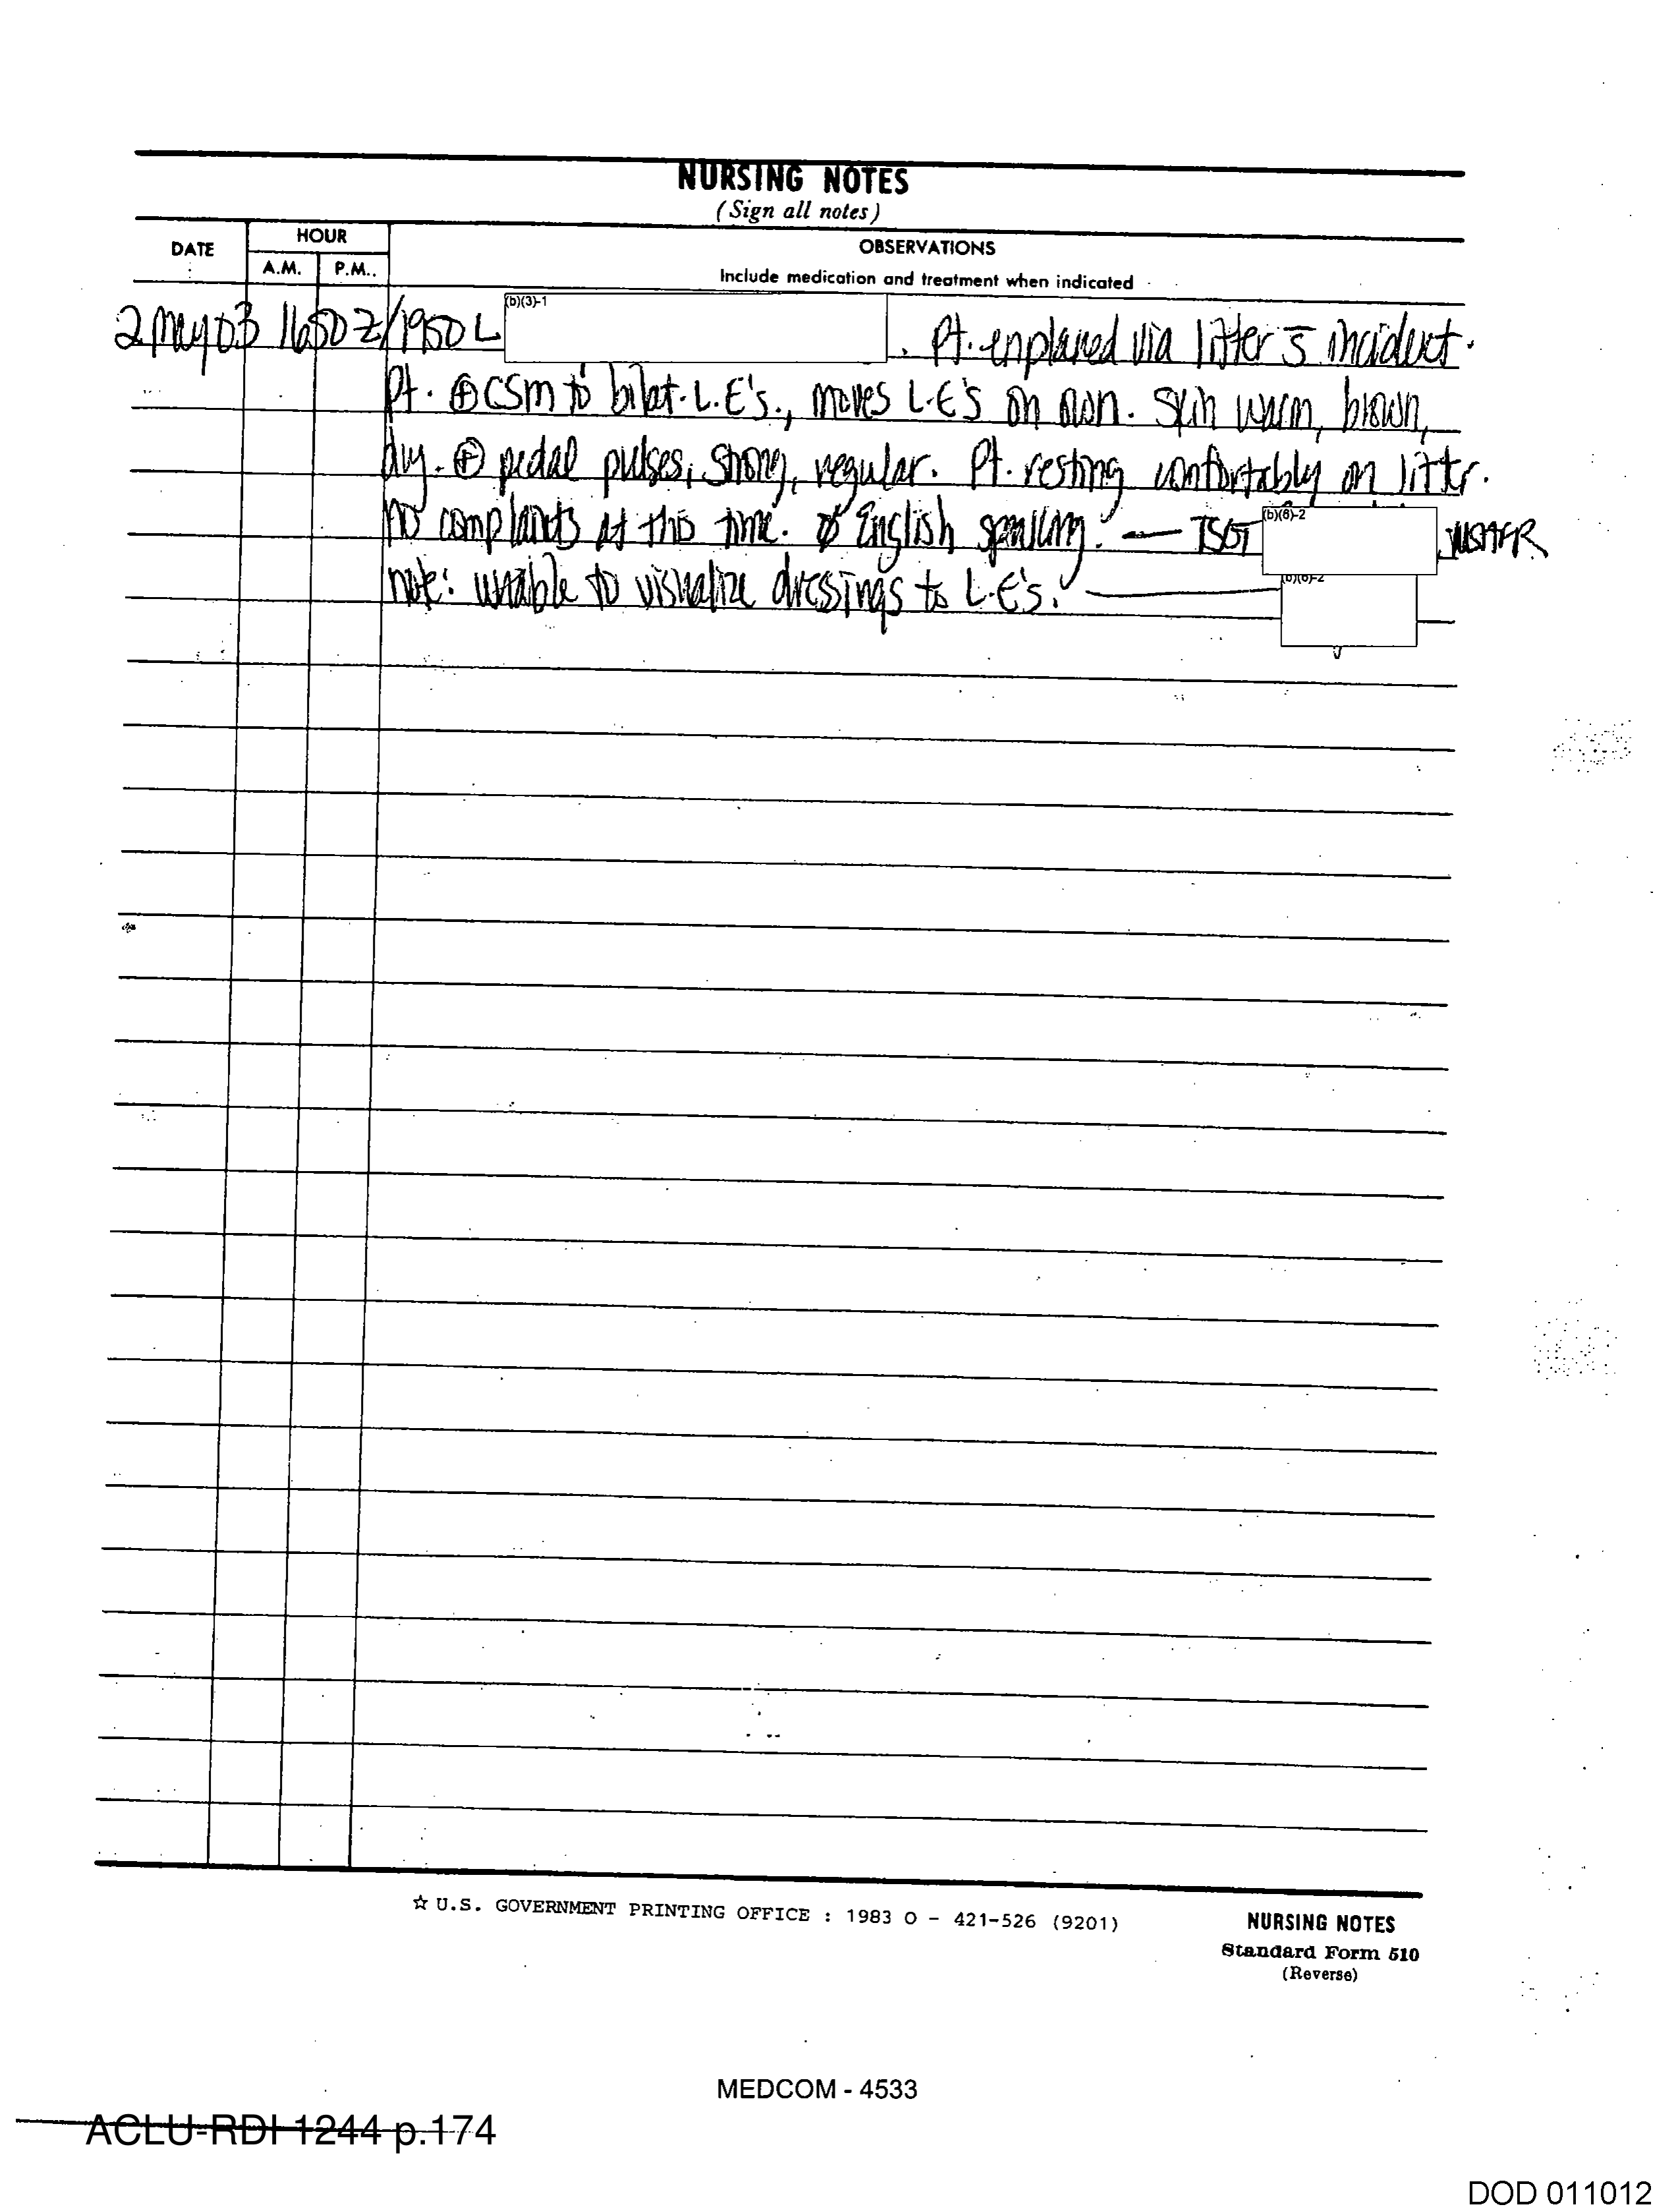 NURSING NOTES
(Sign all notes)
DATE
HOUR
A.M. P.M.
OBSERVATIONS
Include medication and treatment when indicated
2 May 03 1650Z/1950L (b)(3)-1 . Pt. enplaned via litter s̄ incident.
Pt. ⊕ CSM to bilat. L.E's., moves L.E's on own. Skin warm, brown,
dry. ⊕ pedal pulses, strong, regular. Pt. resting comfortably on litter.
no complaints at this time. Ø English speaking. — TSGT (b)(6)-2 USAFR
note: unable to visualize dressings to L.E's. — (b)(6)-2
☆ U.S. GOVERNMENT PRINTING OFFICE : 1983 O - 421-526 (9201)
NURSING NOTES
Standard Form 510
(Reverse)
MEDCOM - 4533
ACLU-RDI 1244 p.174
DOD 011012